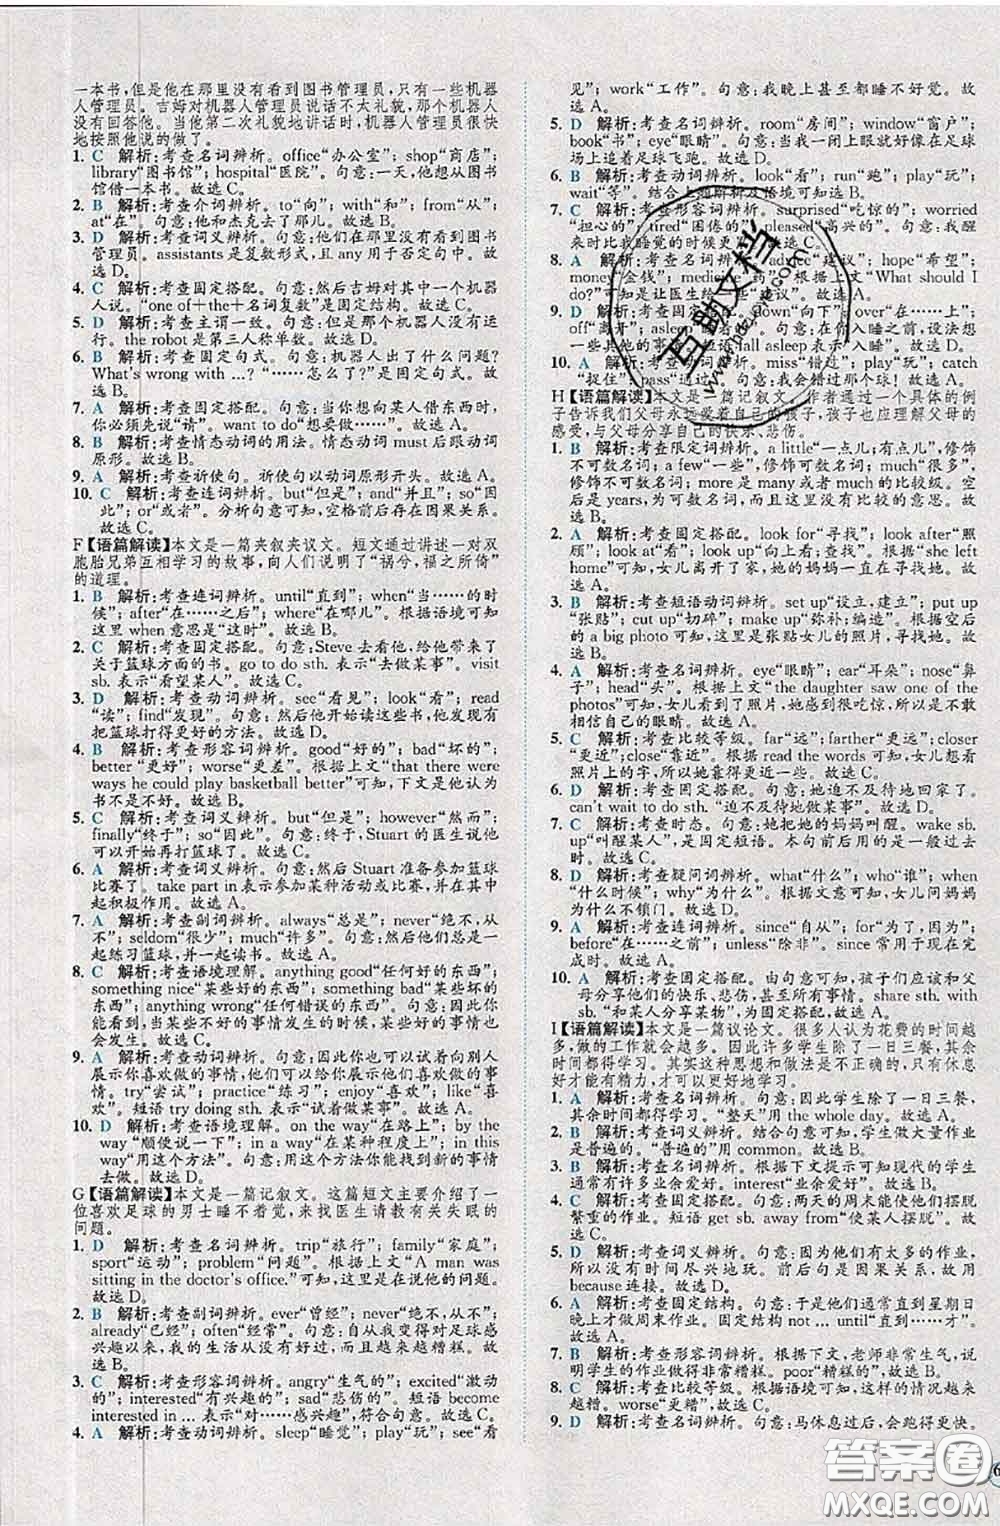 一本书,但是他在那里没有看到图书管理员,只有一些机器
人管理员。吉姆对机器人管理员说话不太礼貌,机器人没
有回答他。当他第二次礼貌地讲话时,机器人管理员很快
地按照他说的做了。
1. C 解析:考查名词辨析。office“办公室”; shop“商店”;
library“图书馆”; hospital“医院”。句意:一天,他想从图书
馆借一本书。故选 C。
2. B 解析:考查介词辨析。to“向”; with“和”; from“从”;
at“在”。句意:他和杰克去了那儿。故选 B。
3. D 解析:考查词义辨析。句意:他们在那里没有看到图书
管理员。assistants 是复数形式,且 any 用于否定句中。故
选 D。
4. C 解析:考查固定搭配。句意:然后吉姆对其中一个机器
人说。“one of+the+名词复数”是固定结构。故选 C。
5. D 解析:考查主谓一致。句意:但是那个机器人没有运
行。the robot 是第三人称单数。故选 D。
6. B 解析:考查固定句式。句意:机器人出了什么问题?
What's wrong with ...? “……怎么了?”是固定句式。故
选 B。
7. A 解析:考查固定搭配。句意:当你想向某人借东西时,
你必须先说“请”。want to do“想要做……”。故选 A。
8. B 解析:考查情态动词的用法。情态动词 must 后跟动词
原形。故选 B。
9. A 解析:考查祈使句。祈使句以动词原形开头。故选 A。
10. C 解析:考查连词辨析。but“但是”; and“并且”; so“因
此”; or“或者”。分析句意可知,空格前后存在因果关系。
故选 C。
F【语篇解读】本文是一篇夹叙夹议文。短文通过讲述一对双
胞胎兄弟互相学习的故事,向人们说明了“祸兮,福之所倚”
的道理。
1. B 解析:考查连词辨析。until“直到”; when“当……的时
候”; after“在……之后”; where“在哪儿”。根据语境可知
这里 when 意思是“这时”。故选 B。
2. C 解析:考查固定搭配。句意:Steve 出去看他,给他带了
关于篮球方面的书。go to do sth. 表示“去做某事”。visit
sb. 表示“看望某人”。故选 C。
3. D 解析:考查动词辨析。see“看见”; look“看”; read
“读”; find“发现”。句意:然后他开始读这些书,他发现了有
把篮球打得更好的方法。故选 D。
4. B 解析:考查形容词辨析。good“好的”; bad“坏的”;
better“更好”; worse“更差”。根据上文“that there were
ways he could play basketball better”可知,下文是他认为
书不是不好。故选 B。
5. C 解析:考查词义辨析。but“但是”; however“然而”;
finally“终于”; so“因此”。句意:终于,Stuart 的医生说他
可以再打篮球了。故选 C。
6. A 解析:考查词义辨析。句意:然后 Stuart 准备参加篮球
比赛了。take part in 表示参加某种活动或比赛,并在其中
起积极作用。故选 A。
7. A 解析:考查副词辨析。always“总是”; never“绝不,从
不”; seldom“很少”; much“许多”。句意:然后他们总是一
起练习篮球,并一起读书。故选 A。
8. C 解析:考查语境理解。anything good“任何好的东西”;
something nice“某些好的东西”; something bad“某些坏的
东西”; anything wrong“任何错误的东西”。句意:可能当
某些不好的事情发生在你身上的时候,某些好的事情也会
发生。故选 C。
9. A 解析:考查动词辨析。句意:你可以试着向别人
展示你喜欢做的事情,他们也展示给你他们喜欢做的事情。
try“尝试”; practice“练习”; enjoy“喜欢”; like“喜
欢”。短语 try doing sth. 表示“试着做某事”。故选 A。
10. D 解析:考查语境理解。on the way“在路上”; by the
way“顺便说一下”; in a way“在某种程度上”; in this
way“用这个方法”。句意:用这个方法,一个新的事情
去做。故选 D。
G【语篇解读】本文是一篇记叙文。这篇短文主要介绍了一
位喜欢足球的男士睡不着觉,来找医生请教有关失眠的
问题。
1. D 解析:考查名词辨析。trip“旅行”; family“家庭”;
sport“运动”; problem“问题”。根据上文“A man was
sitting in the doctor's office.”可知,他在说他的问题。
故选 D。
2. B 解析:考查副词辨析。ever“曾经”; never“绝不,从不”;
already“已经”; often“经常”。句意:自从我变得对足球感
兴趣以来,我从没有好过,而且越来越糟糕。故选 B。
3. C 解析:考查形容词辨析。angry“生气的”; excited“激动
的”; interested“有兴趣的”; sad“悲伤的”。短语 become
interested in ... 表示“对……感兴趣”,符合句意。故选 C。
4. A 解析:考查动词辨析。sleep“睡觉”; play“玩”; see“看
见”; work“工作”。句意:我晚上甚至都睡不好觉。故
选 A。
5. D 解析:考查名词辨析。room“房间”; window“窗户”;
book“书”; eye“眼睛”。句意:我一闭上眼就好像在足球
场上追着足球飞跑。故选 D。
6. B 解析:考查动词辨析。look“看”; run“跑”; play“玩”;
wait“等”。结合上题解析及语境可知选 B。
7. C 解析:考查形容词辨析。surprised“吃惊的”; worried
“担心的”; tired“困倦的”; pleased“高兴的”。句意:我醒
来时比我睡觉的时候更累。故选 C。
8. A 解析:考查名词辨析。advice“建议”; hope“希望”;
money“金钱”; medicine“药”。根据上文“What should I
do?”可知是让医生给一些“建议”。故选 A。
9. D 解析:考查固定搭配。down“向下”; over“在……上”;
off“离开”; asleep“睡着的”。句意:在你入睡之前,设法想
一些其他的事情。短语 fall asleep 表示“入睡”。故选 D。
10. A 解析:考查动词辨析。miss“错过”; play“玩”; catch
“捉住”; pass“通过”。句意:我会错过那个球!故选 A。
H【语篇解读】本文是一篇记叙文。作者通过一个具体的例
子告诉我们父母永远爱着自己的孩子,孩子也应理解父母的
感受,与父母分享自己的快乐、悲伤。
1. B 解析:考查限定词辨析。a little“一点儿;有点儿”,修饰
不可数名词; a few“一些”,修饰可数名词; much“很多”,
修饰不可数名词; more 是 many 或者 much 的比较级。
空后是 years,为可数名词,而且这里没有比较的意思。故
选 B。
2. A 解析:考查固定搭配。look for“寻找”; look after“照
顾”; look at“看”; look up“向上看;查找”。根据“she left
home”可知,女儿离开了家,她的妈妈一直在找她。故
选 A。
3. B 解析:考查短语动词辨析。set up“设立,建立”; put up
“张贴”; cut up“切碎”; make up“弥补;编造”。根据空后
的 a big photo 可知,这里是张贴女儿的照片,寻找女儿。
故选 B。
4. A 解析:考查名词辨析。eye“眼睛”; ear“耳朵”; nose“鼻
子”; head“头”。根据上文“the daughter saw one of the
photos”可知,女儿看到了照片,她感到很吃惊,她不敢
相信自己的眼睛。故选 A。
5. C 解析:考查比较等级。far“远”; farther“更远”; closer
“更近”; close“靠近”。根据 read the words 可知,她想看
照片上的字,所以她靠得更近一些。故选 C。
6. D 解析:考查固定搭配。句意:她迫不及待地回家了。
can't wait to do sth. “迫不及待地做某事”。故选 D。
7. C 解析:考查时态。句意:她把她的妈妈叫醒。wake sb.
up“叫醒某人”,是固定短语。本句前后用的是一般过去
时。故选 C。
8. D 解析:考查疑问词辨析。what“什么”; who“谁”; when
“什么时候”; why“为什么”。根据句意可知,女儿问妈妈
为什么不锁门。故选 D。
9. A 解析:考查连词辨析。since“自从”; for“为了,因为”;
before“在……之前”; unless“除非”。since 常用于现在完成
时。故选 A。
10. A 解析:考查固定搭配。由句意可知,孩子们应该和父
母分享他们的快乐、悲伤,甚至所有事情。share sth. with
sb. “和某人分享某物”,为固定搭配。故选 A。
I【语篇解读】本文是一篇议论文。很多人认为花费的时间越
多,做的工作就会越多。因此许多学生除了一日三餐,其
余时间都得学习。其实这种思想和做法是不正确的,只有休息
好才能有精力,才能更好地学习。
1. A 解析:考查名词辨析。句意:因此学生除了一日三餐,
其余时间都得学习。“整天”用 the whole day。故选 A。
2. B 解析:考查词义辨析。结合句意可知,学生做大量作业
是普遍的。“普遍的”用 common。故选 B。
3. B 解析:考查名词辨析。根据下文提示可知现代的学生
通常有许多业余爱好。interest“业余爱好”。故选 B。
4. C 解析:考查固定搭配。句意:两天的周末能使他们摆脱
繁重的作业。短语 get sb. away from“使某人摆脱”。故
选 C。
5. D 解析:考查词义辨析。句意:因为他们有太多的作业,
所以他们没有时间尽兴地玩。前后句是因果关系,故用
because 连接。故选 D。
6. A 解析:考查固定结构。句意:于是他们通常直到星期日
晚上才做周末作业。固定结构 not ... until“直到……才”。
故选 A。
7. B 解析:考查形容词辨析。根据下文,老师非常生气,说
明学生的作业做得非常糟糕。poor“糟糕的”。故选 B。
8. C 解析:考查比较等级。根据语境可知,这样的情况越来
越糟。worse“更糟”,故选 C。
9. D 解析:考查名词辨析。句意:马休息过后,会跑得更快。
互助文档
答案圈
MXQE.COM